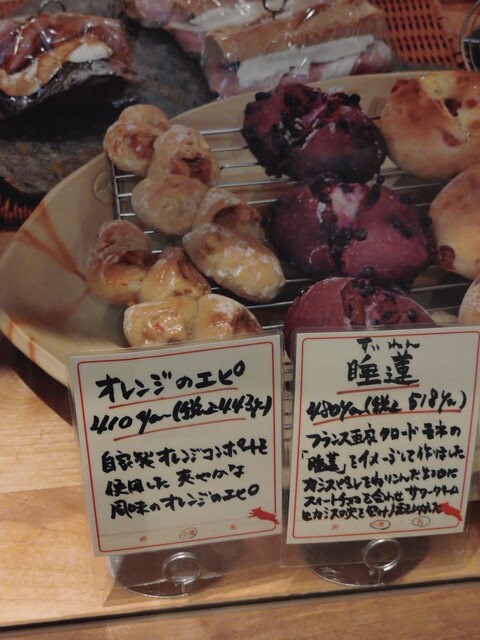 オレンジのエピ
410yen(税込443yen)
自家製オレンジコンポートを
使用した 爽やかな
風味のオレンジのエピ
卵 小麦 乳
すいれん
睡蓮
480yen(税込 518yen)
フランス画家 クロード モネの
「睡蓮」をイメージして作りました
カシスピューレでねりこんだ生地に
スイートチョコを合わせ サワークリーム
とカシスの実を包み
卵 小麦 乳